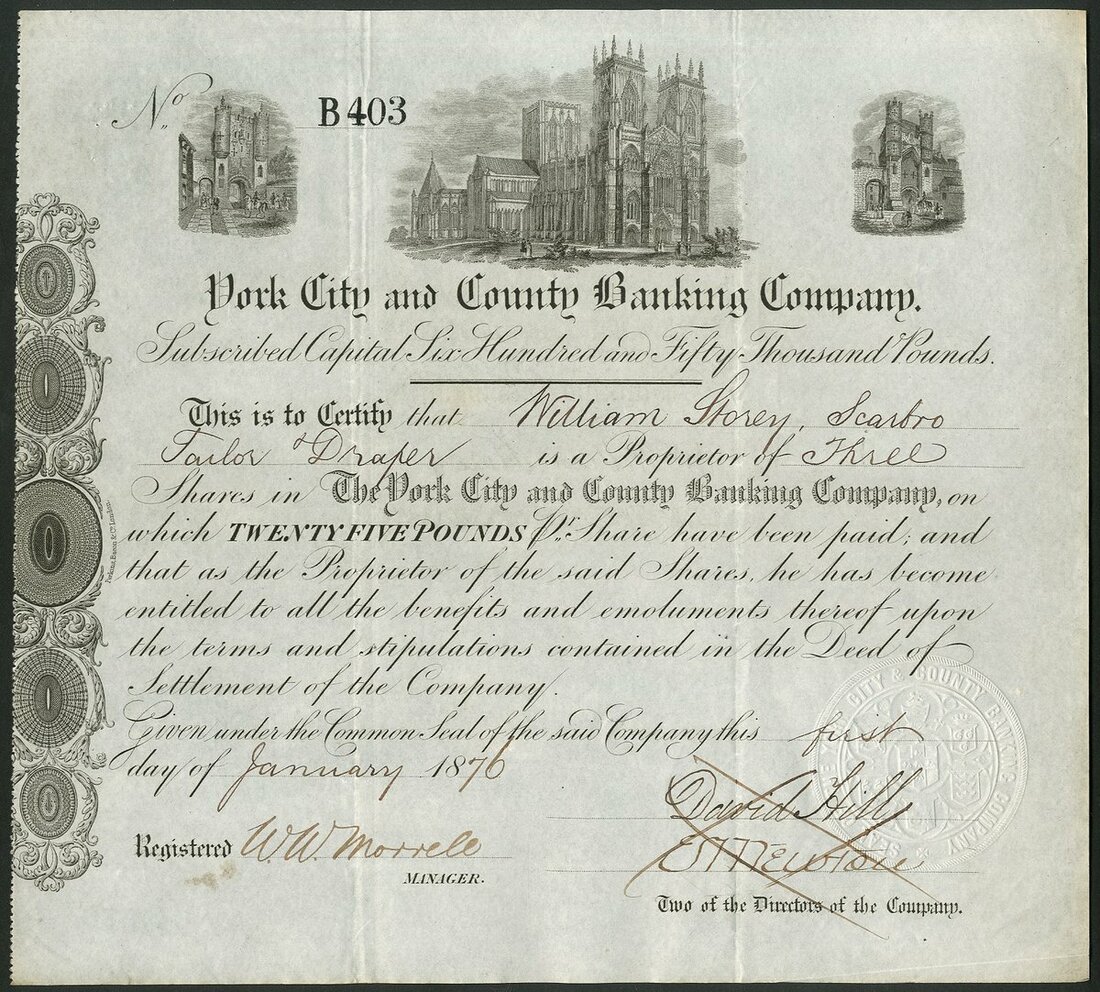 No. B403
York City and County Banking Company.
Subscribed Capital Six Hundred and Fifty Thousand Pounds.
This is to Certify that William Storey, Scarbro
Tailor & Draper is a Proprietor of Three
Shares in The York City and County Banking Company, on
which TWENTY FIVE POUNDS Pr. Share have been paid; and
that as the Proprietor of the said Shares, he has become
entitled to all the benefits and emoluments thereof upon
the terms and stipulations contained in the Deed of
Settlement of the Company.
Given under the Common Seal of the said Company this first
day of January 1876
David Hill
Registered W. W. Morrell
MANAGER.
Newton
Two of the Directors of the Company.
Perkins, Bacon & Co. London.
CITY & COUNTY BANKING COMPANY